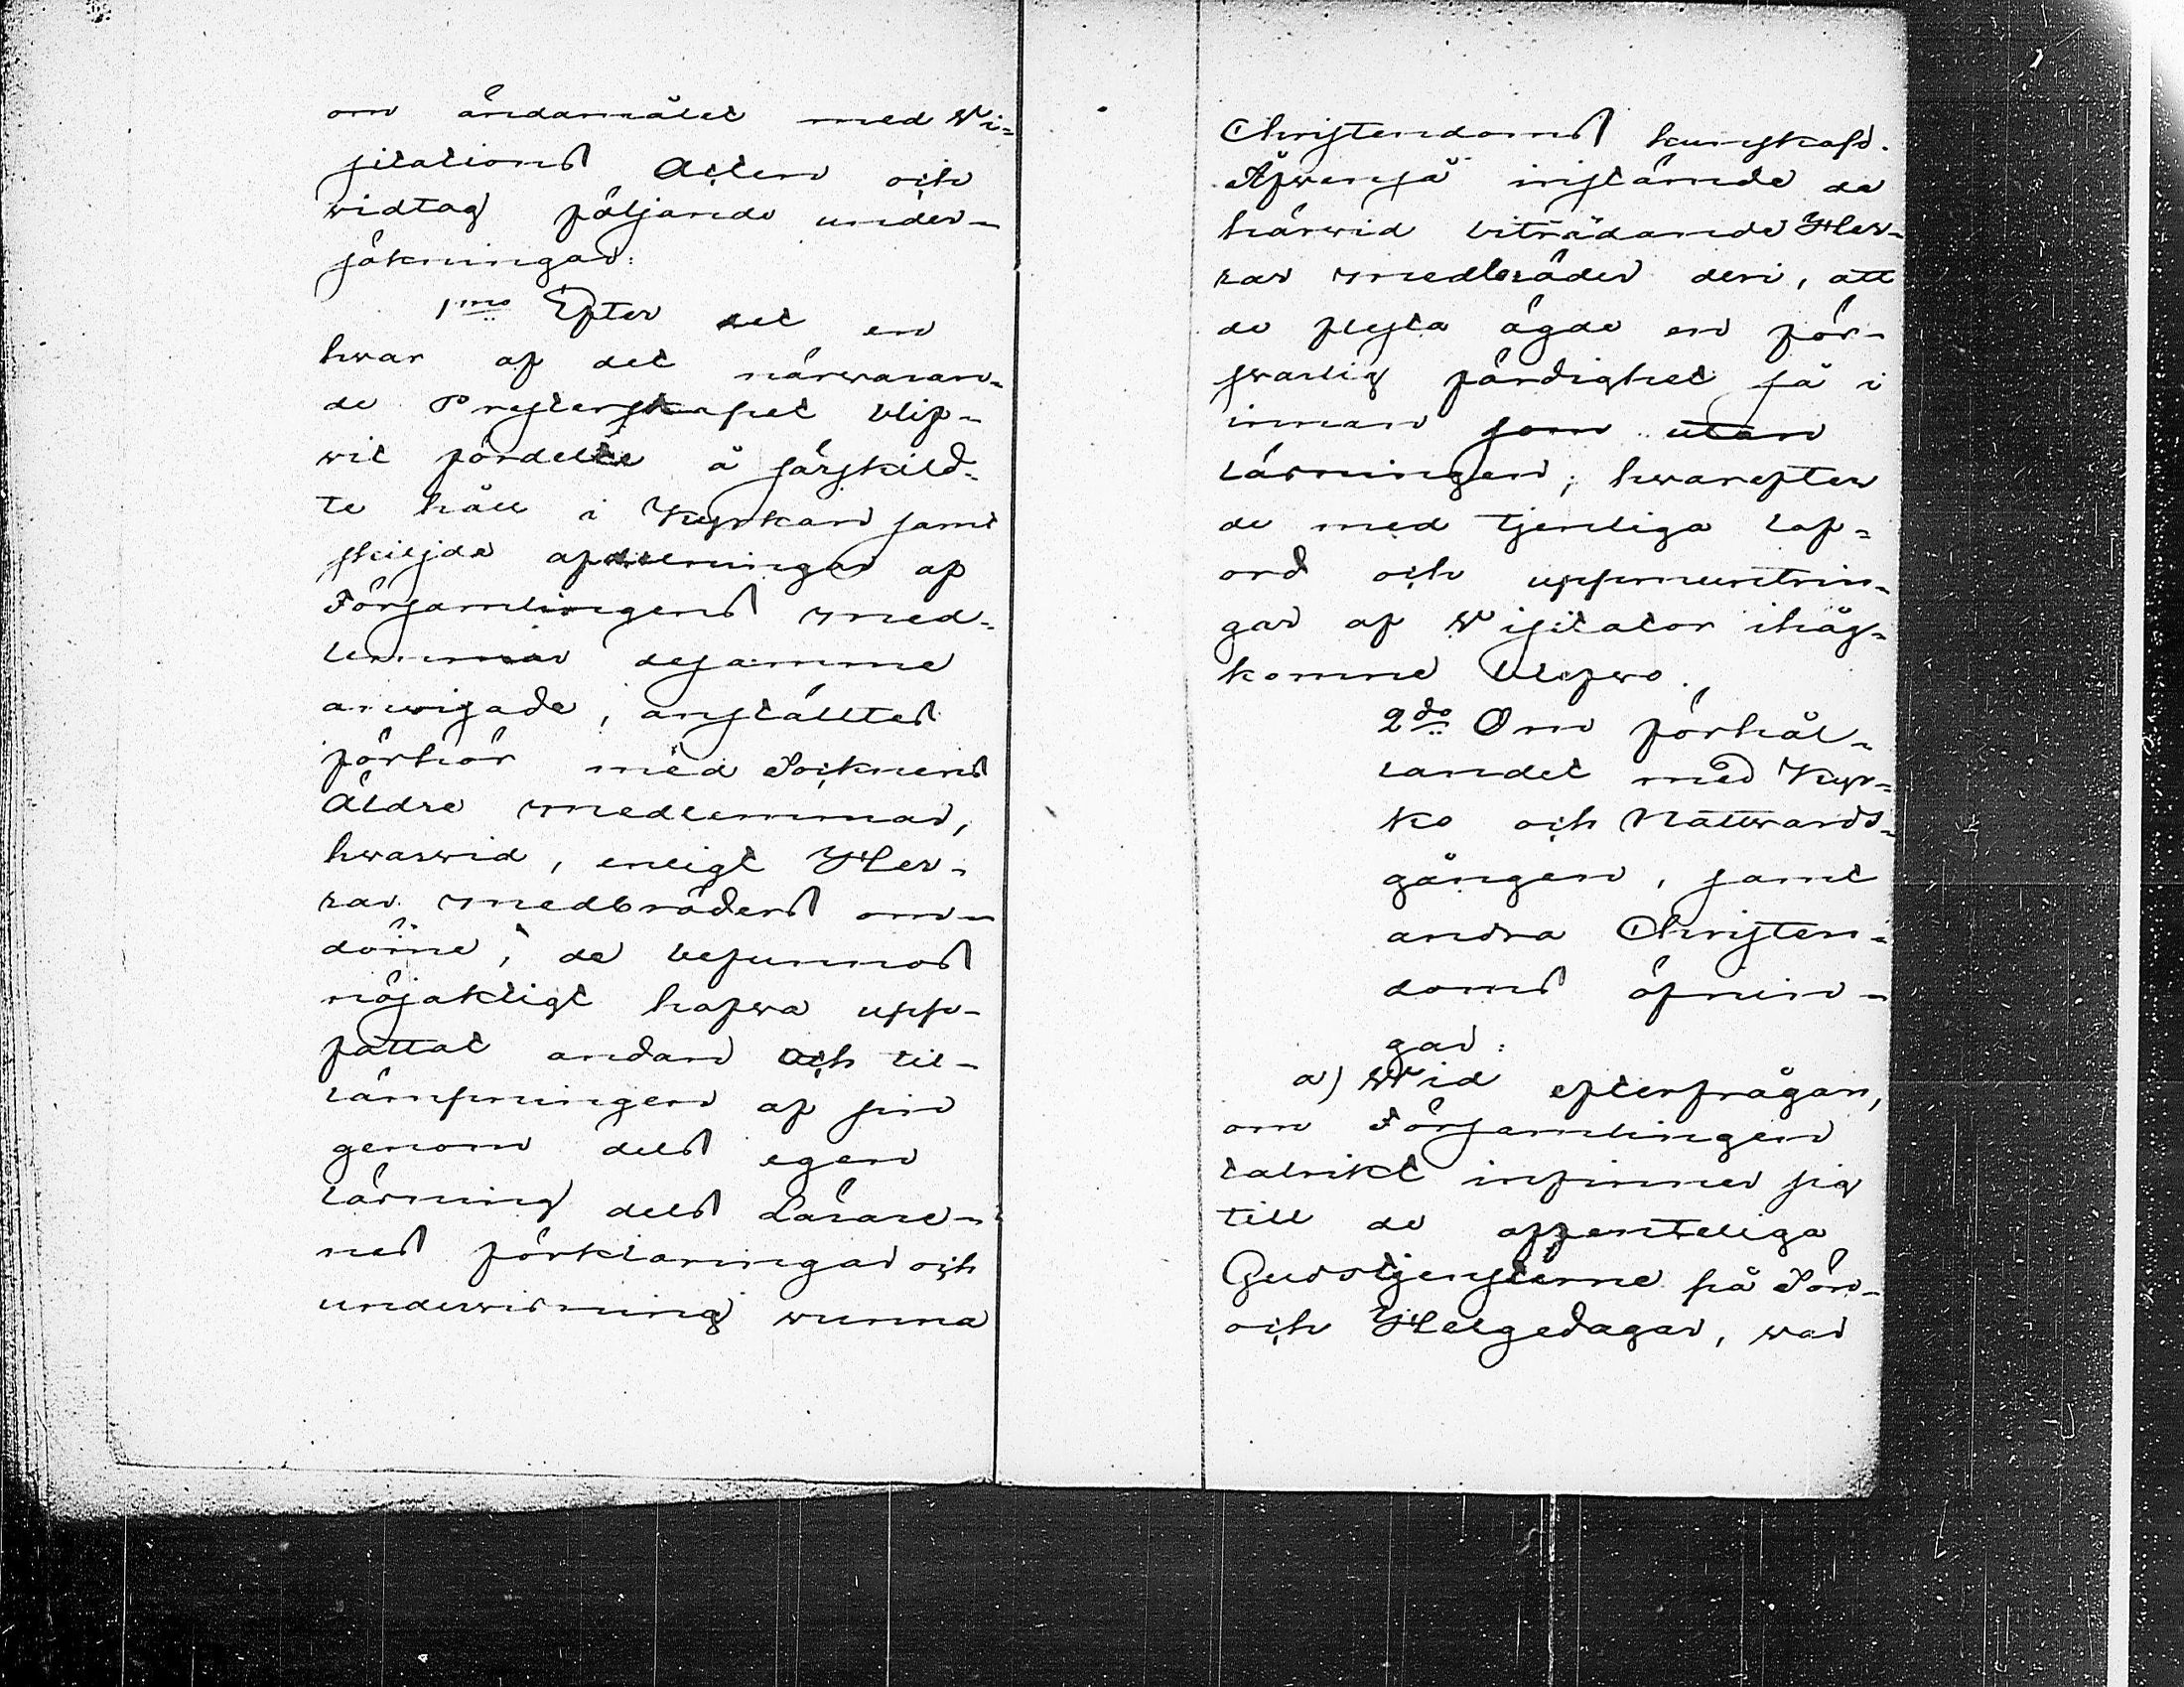 om ändamålet med Wi=
sitations Acten och
widtog följande under-
sökningar:
1mo Efter det en
hwar af det närwaran-
de Presterskapet blif-
wit fördelte å särskild-
te håll i Kyrkan samt
skiljde afdelningar af
Församlingens med-
lemmar desamme
anwisade, anställtes
förhör med Socknens
äldre medlemmar,
hwarwid, enligt Her-
rar medbröders om-
döme, de befunnos
nöjaktigt hafwa upp-
fattat andan och til-
lämpningen af sin
genom dels egen
läsning dels Lärare-
nes förklaringar och
underwisning wunna
Christendoms kunskap.
Äfwenså instämde de
härwid biträdande Her-
rar medbröder deri, att
de flesta ägde en för-
swarlig färdighet så i
innan som utan
läsningen; hwarefter
de med tjenliga lof-
ord och uppmuntrin-
gar af Wisitator ihåg-
komne blefwo.
2do Om förhål-
landet med Kyr-
ko och Nattwards-
gången, samt
andra Christen-
doms öfnin-
gar:
a) Wid efterfrågan,
om Församlingen
talrikt infinner sig
till de offenteliga
Gudstjensterne på Sön-
och Helgedagar, war